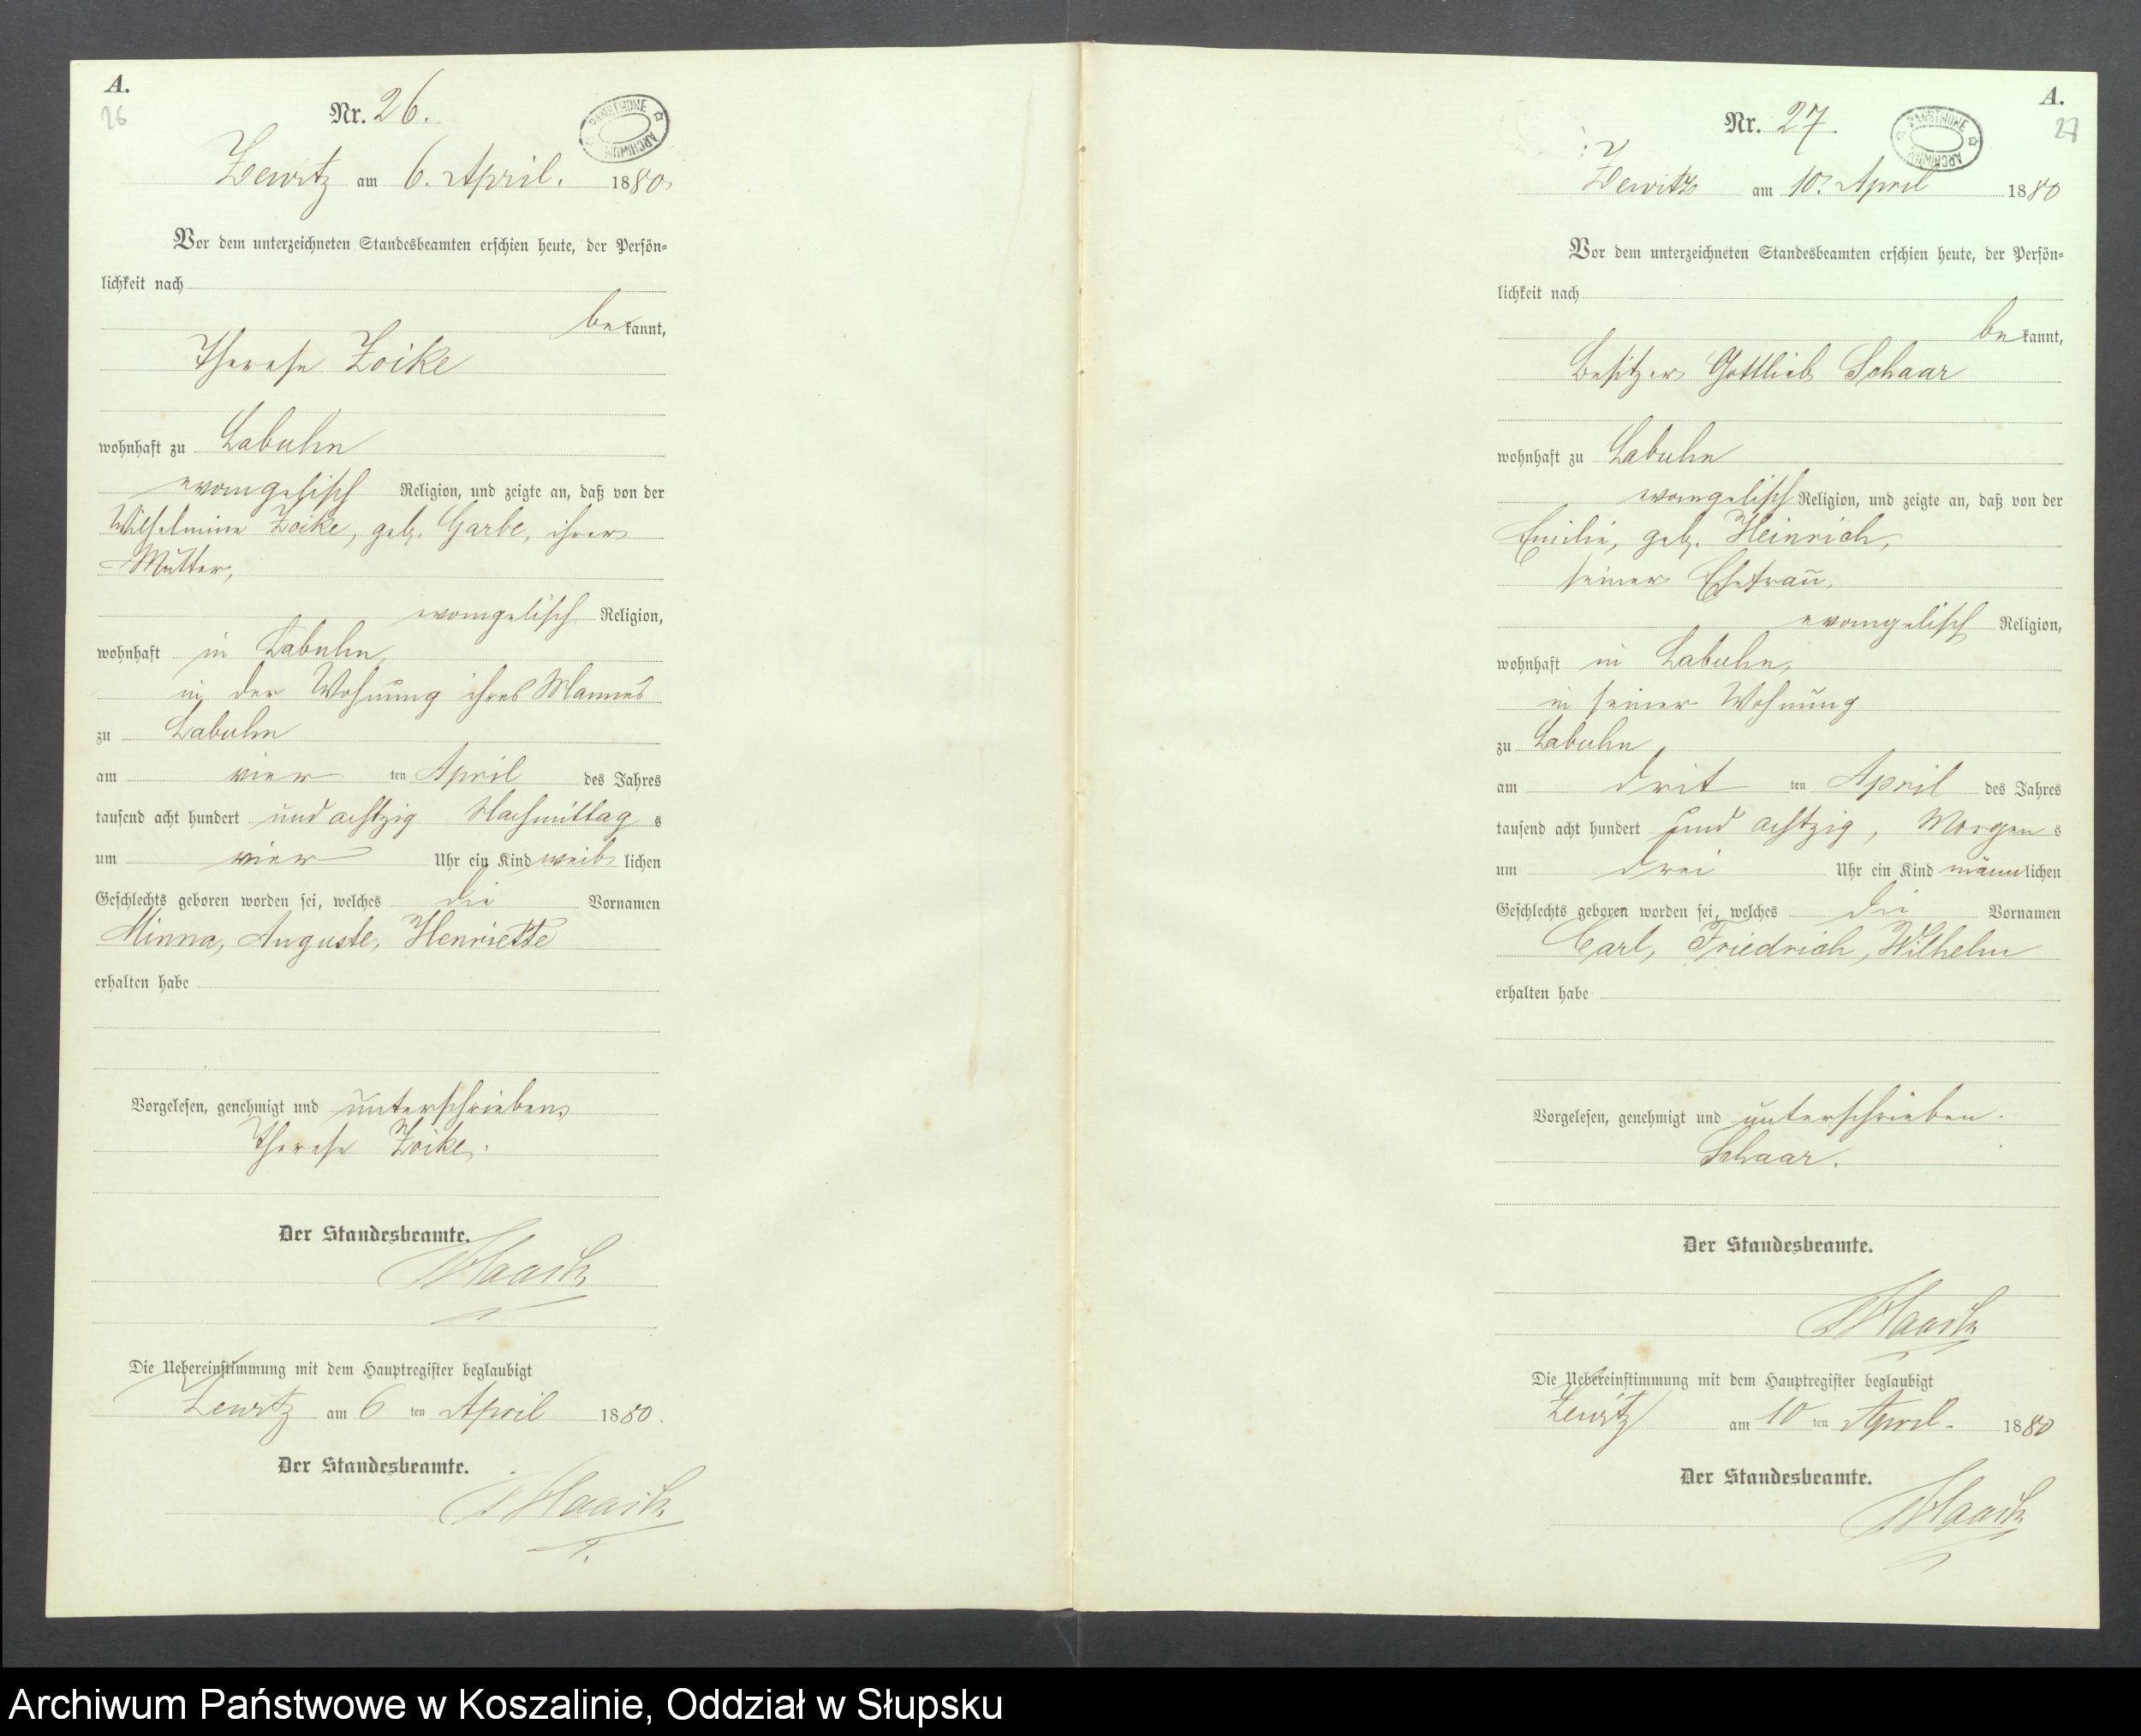 A.
26
Nr. 26.
PAŃSTWOWE ARCHIWUM
Zewitz am 6. April. 1880
Vor dem unterzeichneten Standesbeamten erschien heute, der Persön-
lichkeit nach
bekannt,
Therese Zoike
wohnhaft zu Labuhn
evangelisch Religion, und zeigte an, daß von der
Wilhelmine Zoike, geb. Garbe, ihrer
Mutter,
evangelisch Religion,
wohnhaft in Labuhn,
in der Wohnung ihres Mannes
zu Labuhn
am vier ten April des Jahres
tausend acht hundert und achtzig Nachmittag s
um vier Uhr ein Kind weiblichen
Geschlechts geboren worden sei, welches die Vornamen
Minna, Auguste, Henriette
erhalten habe
Vorgelesen, genehmigt und unterschrieben
Therese Zoike.
Der Standesbeamte.
Die Uebereinstimmung mit dem Hauptregister beglaubigt
Zewitz am 6 ten April 1880.
Der Standesbeamte.
A.
27
Nr. 27.
PAŃSTWOWE ARCHIWUM
Zewitz am 10. April 1880
Vor dem unterzeichneten Standesbeamten erschien heute, der Persön-
lichkeit nach
bekannt,
Besitzer Gottlieb Schaar
wohnhaft zu Labuhn
evangelisch Religion, und zeigte an, daß von der
Emilie, geb. Heinrich,
seiner Ehefrau,
evangelisch Religion,
wohnhaft in Labuhn,
in seiner Wohnung
zu Labuhn,
am drit ten April des Jahres
tausend acht hundert und achtzig, Morgen s
um drei Uhr ein Kind männlichen
Geschlechts geboren worden sei, welches die Vornamen
Carl, Friedrich, Wilhelm
erhalten habe
Vorgelesen, genehmigt und unterschrieben.
Schaar.
Der Standesbeamte.
Die Uebereinstimmung mit dem Hauptregister beglaubigt
Zewitz am 10 ten April. 1880
Der Standesbeamte.
Archiwum Państwowe w Koszalinie, Oddział w Słupsku